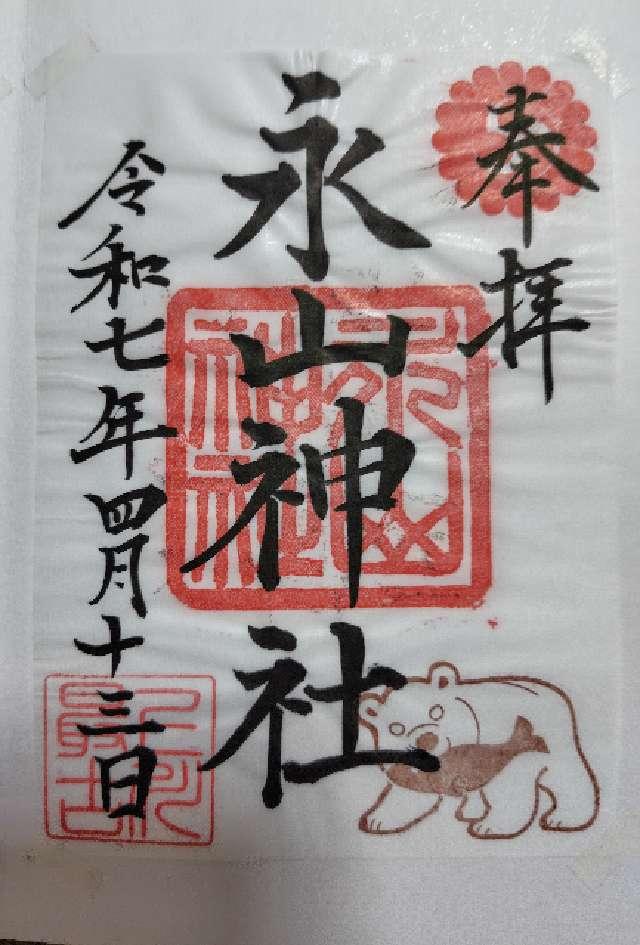 奉拝
永山神社
令和七年四月十三日